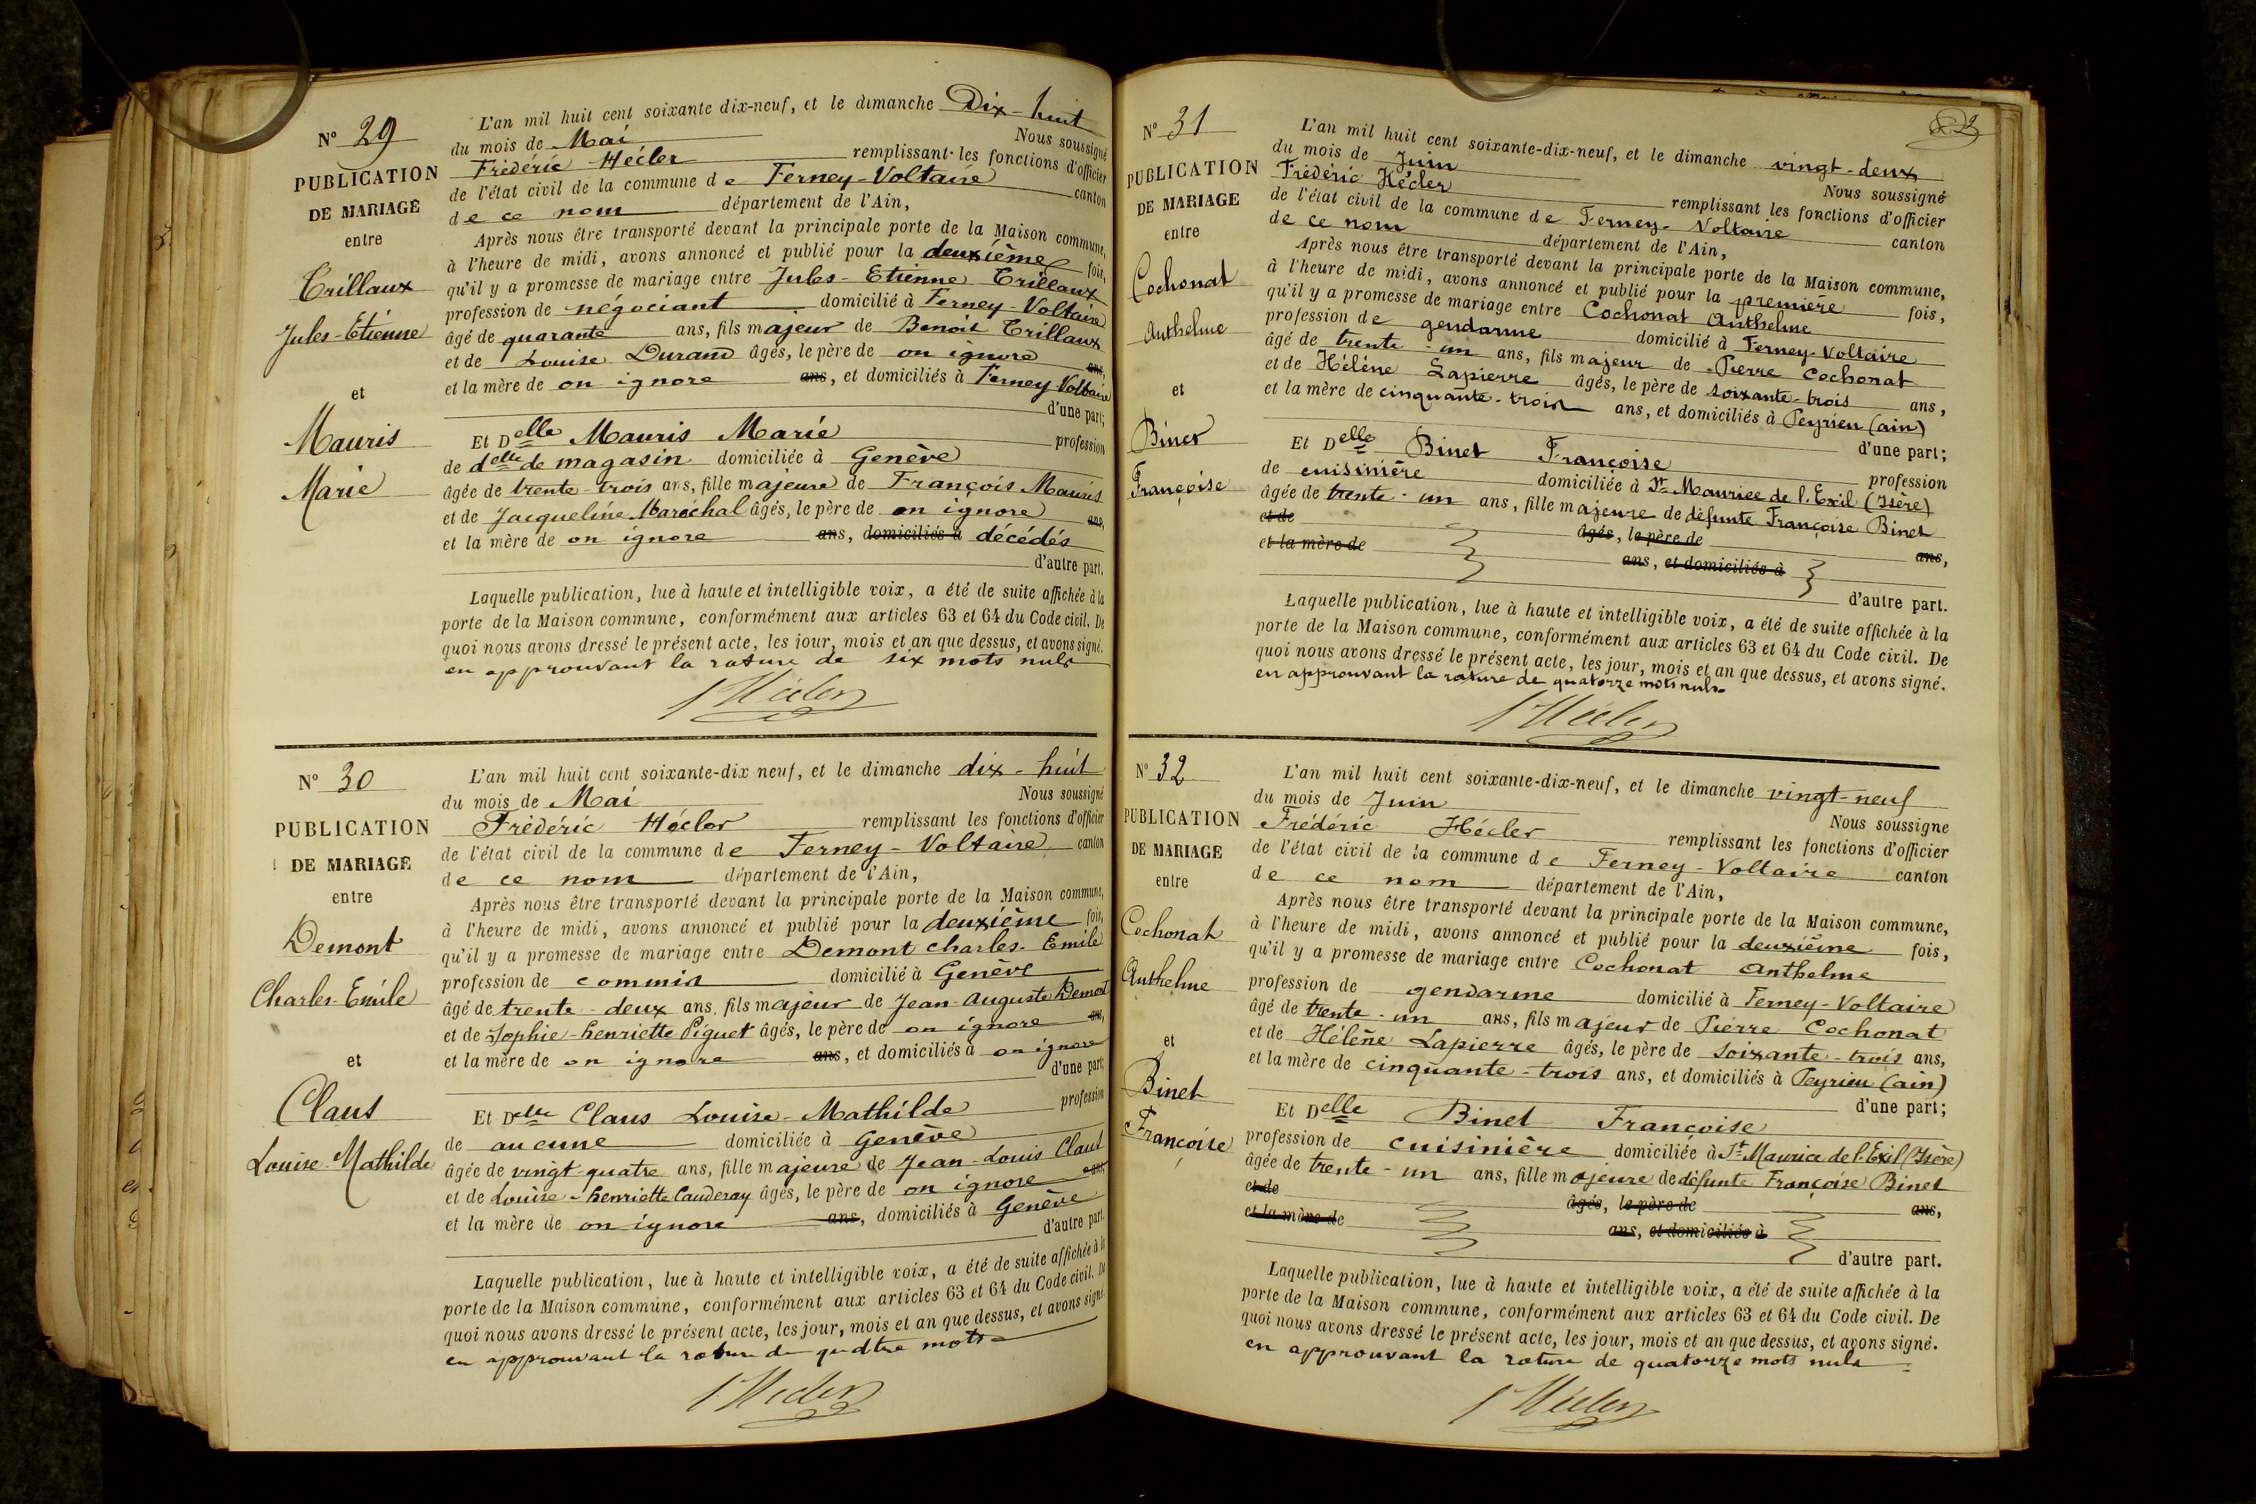 N° 29
PUBLICATION
DE MARIAGE
entre
Trillaux
Jules-Etienne
et
Mauris
Marie
L'an mil huit cent soixante dix-neuf, et le dimanche Dix-huit
du mois de Mai Nous soussigné
Frédéric Hécler remplissant les fonctions d'officier
de l'état civil de la commune de Ferney-Voltaire canton
de ce nom département de l'Ain,
Après nous être transporté devant la principale porte de la Maison commune,
à l'heure de midi, avons annoncé et publié pour la deuxième fois,
qu'il y a promesse de mariage entre Jules-Etienne Trillaux
profession de négociant domicilié à Ferney-Voltaire
âgé de quarante ans, fils majeur de Benoit Trillaux
et de Louise Durand âgés, le père de on ignore ans,
et la mère de on ignore ans, et domiciliés à Ferney Voltaire
d'une part;
Et Delle Mauris Marie profession
de delle de magasin domiciliée à Genève
âgée de trente-trois ans, fille majeure de François Mauris
et de Jacqueline Maréchal âgés, le père de on ignore ans,
et la mère de on ignore ans, domiciliés à décédés
d'autre part.
Laquelle publication, lue à haute et intelligible voix, a été de suite affichée à la
porte de la Maison commune, conformément aux articles 63 et 64 du Code civil. De
quoi nous avons dressé le présent acte, les jour, mois et an que dessus, et avons signé.
en approuvant la rature de six mots nuls
Hécler
N° 30
PUBLICATION
DE MARIAGE
entre
Demont
Charles-Emile
et
Claus
Louise-Mathilde
L'an mil huit cent soixante-dix neuf, et le dimanche dix-huit
du mois de Mai Nous soussigné
Frédéric Hécler remplissant les fonctions d'officier
de l'état civil de la commune de Ferney-Voltaire canton
de ce nom département de l'Ain,
Après nous être transporté devant la principale porte de la Maison commune,
à l'heure de midi, avons annoncé et publié pour la deuxième fois,
qu'il y a promesse de mariage entre Demont Charles-Emile
profession de commis domicilié à Genève
âgé de trente-deux ans, fils majeur de Jean-Auguste Demont
et de Sophie-henriette Piguet âgés, le père de on ignore ans,
et la mère de on ignore ans, et domiciliés à on ignore
d'une part;
Et Delle Claus Louise-Mathilde profession
de aucune domiciliée à Genève
âgée de vingt-quatre ans, fille majeure de Jean-Louis Claus
et de Louise-henriette Cauderay âgés, le père de on ignore ans,
et la mère de on ignore ans, domiciliés à Genève
d'autre part.
Laquelle publication, lue à haute et intelligible voix, a été de suite affichée à la
porte de la Maison commune, conformément aux articles 63 et 64 du Code civil. De
quoi nous avons dressé le présent acte, les jour, mois et an que dessus, et avons signé.
en approuvant la rature de quatre mots
Hécler
N° 31
PUBLICATION
DE MARIAGE
entre
Cochonat
Anthelme
et
Binet
Françoise
L'an mil huit cent soixante-dix-neuf, et le dimanche vingt-deux
du mois de Juin Nous soussigné
Frédéric Hécler remplissant les fonctions d'officier
de l'état civil de la commune de Ferney-Voltaire canton
de ce nom département de l'Ain,
Après nous être transporté devant la principale porte de la Maison commune,
à l'heure de midi, avons annoncé et publié pour la première fois,
qu'il y a promesse de mariage entre Cochonat Anthelme
profession de gendarme domicilié à Ferney-Voltaire
âgé de trente-un ans, fils majeur de Pierre Cochonat
et de Hélène Lapierre âgés, le père de soixante-trois ans,
et la mère de cinquante-trois ans, et domiciliés à Peyrieu (ain)
d'une part;
Et Delle Binet Françoise profession
de cuisinière domiciliée à St Maurice de l'Exil (Isère)
âgée de trente-un ans, fille majeure de défunte Françoise Binet
et de âgés, le père de ans,
et la mère de ans, et domiciliés à
d'autre part.
Laquelle publication, lue à haute et intelligible voix, a été de suite affichée à la
porte de la Maison commune, conformément aux articles 63 et 64 du Code civil. De
quoi nous avons dressé le présent acte, les jour, mois et an que dessus, et avons signé.
en approuvant la rature de quatorze mots nuls
Hécler
N° 32
PUBLICATION
DE MARIAGE
entre
Cochonat
Anthelme
et
Binet
Françoise
L'an mil huit cent soixante-dix-neuf, et le dimanche vingt-neuf
du mois de Juin Nous soussigne
Frédéric Hécler remplissant les fonctions d'officier
de l'état civil de la commune de Ferney-Voltaire canton
de ce nom département de l'Ain,
Après nous être transporté devant la principale porte de la Maison commune,
à l'heure de midi, avons annoncé et publié pour la deuxième fois,
qu'il y a promesse de mariage entre Cochonat Anthelme
profession de gendarme domicilié à Ferney-Voltaire
âgé de trente-un ans, fils majeur de Pierre Cochonat
et de Hélène Lapierre âgés, le père de soixante-trois ans,
et la mère de cinquante-trois ans, et domiciliés à Peyrieu (ain)
d'une part;
Et Delle Binet Françoise
profession de cuisinière domiciliée à St Maurice de l'Exil (Isère)
âgée de trente-un ans, fille majeure de défunte Françoise Binet
et de âgés, le père de ans,
et la mère de ans, et domiciliés à
d'autre part.
Laquelle publication, lue à haute et intelligible voix, a été de suite affichée à la
porte de la Maison commune, conformément aux articles 63 et 64 du Code civil. De
quoi nous avons dressé le présent acte, les jour, mois et an que dessus, et avons signé.
en approuvant la rature de quatorze mots nuls
Hécler